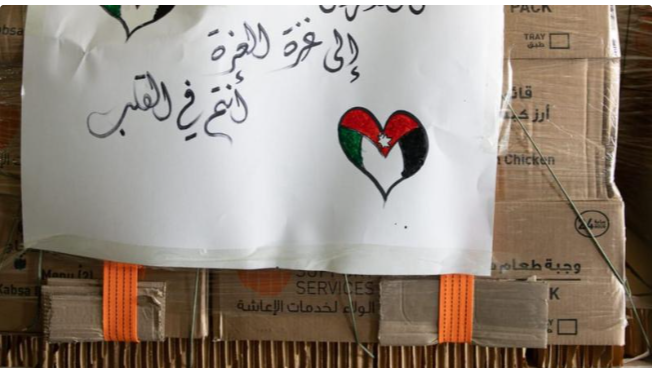 إلى غزة العزة
أنتم في القلب
PACK
TRAY
طبق
أرز
Chicken
24
وجبة طعام
Menu (2)
Kabsa
SERVICES
الولاء لخدمات الإعاشة
K